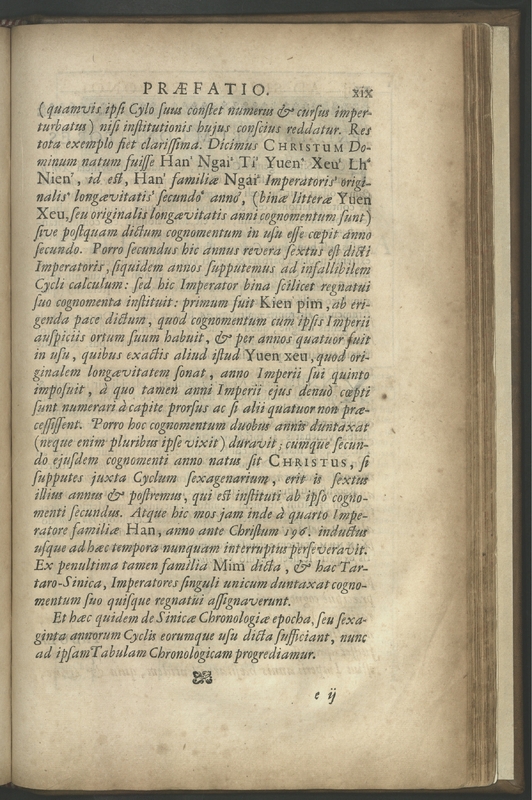 PRÆFATIO. xix
(quamvis ipsi Cylo suus constet numerus & cursus imper-
turbatus) nisi institutionis hujus conscius reddatur. Res
tota exemplo fiet clarissima. Dicimus CHRISTUM Do-
minum natum fuisse Han⁴ Ngai¹ Ti⁴ Yuen² Xeu⁴ Lh⁴
Nien², id est, Han⁴ familiæ Ngai¹ Imperatoris⁴ origi-
nalis² longævitatis⁴ secundo⁴ anno², (binæ litteræ Yuen
Xeu, seu originalis longævitatis anni cognomentum sunt)
sive postquam dictum cognomentum in usu esse cœpit anno
secundo. Porro secundus hic annus revera sextus est dicti
Imperatoris, siquidem annos supputemus ad infallibilem
Cycli calculum: sed hic Imperator bina scilicet regnatui
suo cognomenta instituit: primum fuit Kien pim, ab eri-
genda pace dictum, quod cognomentum cum ipsis Imperii
auspiciis ortum suum habuit, & per annos quatuor fuit
in usu, quibus exactis aliud istud Yuen xeu, quod ori-
ginalem longævitatem sonat, anno Imperii sui quinto
imposuit, à quo tamen anni Imperii ejus denuò cœpti
sunt numerari à capite prorsus ac si alii quatuor non præ-
cessissent. Porro hoc cognomentum duobus annis duntaxat
(neque enim pluribus ipse vixit) duravit; cumque secun-
do ejusdem cognomenti anno natus sit CHRISTUS, si
supputes juxta Cyclum sexagenarium, erit is sextus
illius annus & postremus, qui est instituti ab ipso cogno-
menti secundus. Atque hic mos jam inde à quarto Impe-
ratore familiæ Han, anno ante Christum 196. inductus
usque ad hæc tempora nunquam interruptus perseveravit.
Ex penultima tamen familia Mim dicta, & hac Tar-
taro-Sinica, Imperatores singuli unicum duntaxat cogno-
mentum suo quisque regnatui assignaverunt.
Et hæc quidem de Sinicæ Chronologiæ epocha, seu sexa-
ginta annorum Cyclis eorumque usu dicta sufficiant, nunc
ad ipsam Tabulam Chronologicam progrediamur.
e ij